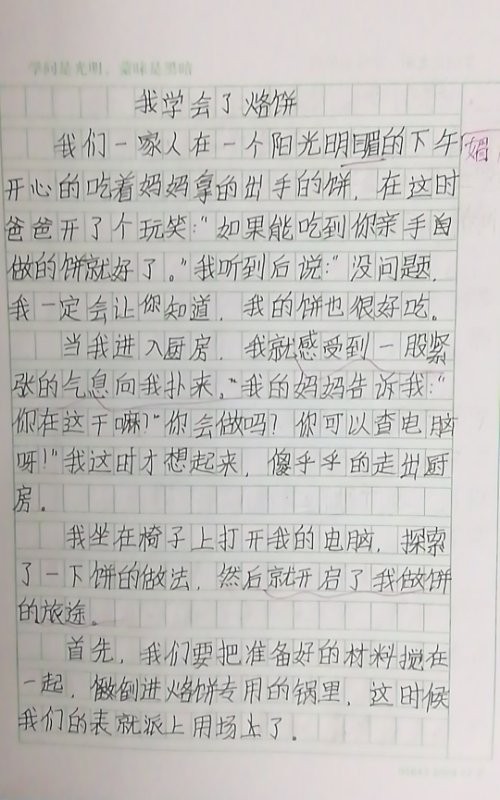 学问是光明，蒙昧是黑暗
我学会了烙饼
我们一家人在一个阳光明媚的下午
媚
开心的吃着妈妈拿的出手的饼，在这时
爸爸开了个玩笑:"如果能吃到你亲手自
做的饼就好了。"我听到后说:"没问题，
我一定会让你知道，我的饼也很好吃。
当我进入厨房，我就感受到一股紧
张的气息向我扑来。"我的妈妈告诉我:"
你在这干嘛?"你会做吗?你可以查电脑
呀!"我这时才想起来，傻乎乎的走出厨
房。
我坐在椅子上打开我的电脑，探索
了一下饼的做法，然后就开启了我做饼
的旅途。
首先，我们要把准备好的材料搅在
一起，做倒进烙饼专用的锅里，这时候
我们的表就派上用场上了。